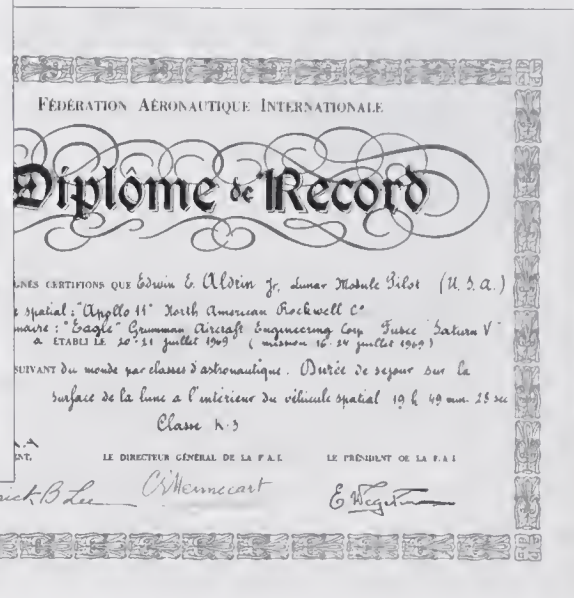 FÉDÉRATION AÉRONAUTIQUE INTERNATIONALE
Diplôme de Record
GNÉS CERTIFIONS QUE Edwin E. Aldrin Jr, Lunar Module Pilot (U.S.A.)
spatial: "Apollo 11" North American Rockwell C°
naire: "Eagle" Grumman Aircraft Engineering Corp Fusée "Saturn V"
A ÉTABLI LE 20-21 juillet 1969 (mission 16-24 juillet 1969)
SUIVANT du monde par classes d'astronautique. Durée de sejour sur la
surface de la lune a l'intérieur du véhicule spatial 19 h 49 mn. 28 sec
Classe K-3
LE DIRECTEUR GÉNÉRAL DE LA F.A.I. LE PRÉSIDENT DE LA F.A.I
rick B Lee